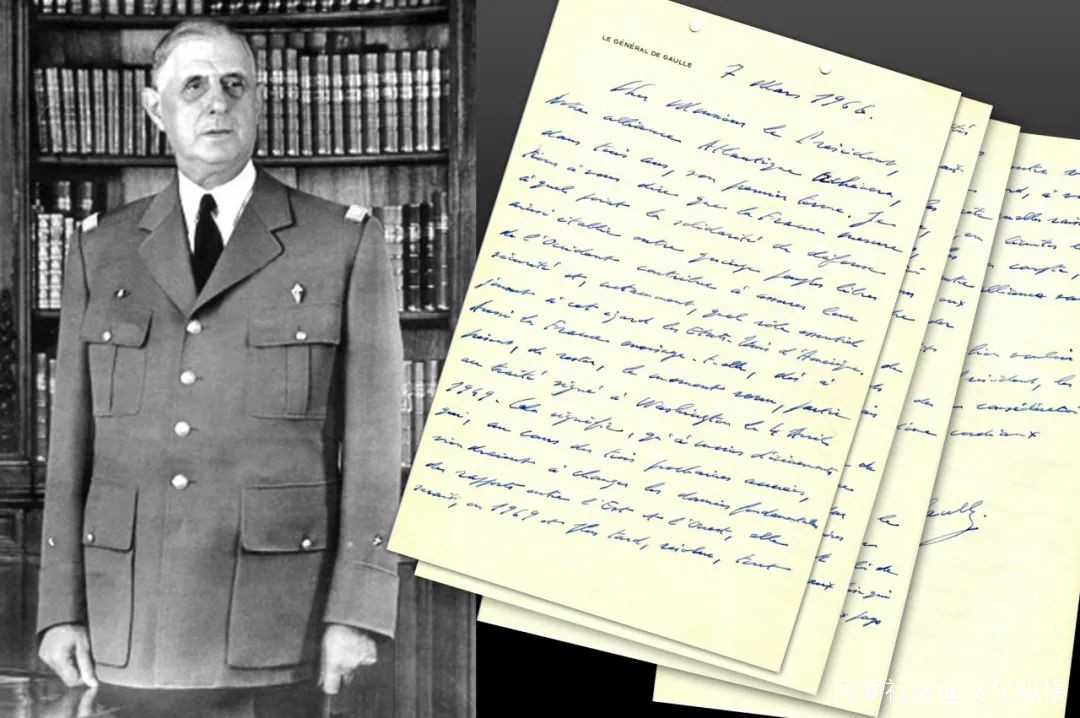 LE GÉNÉRAL DE GAULLE
7 Mars 1966.
Cher Monsieur le Président,
Notre alliance Atlantique achèvera,
dans trois ans, son premier terme. Je
tiens à vous dire que la France mesure
à quel point la solidarité de défense
ainsi établie entre quinze peuples libres
de l'Occident contribue à assurer leur
sécurité et, notamment, quel rôle essentiel
jouent à cet égard les Etats-Unis d'Amérique.
Aussi la France envisage-t-elle, dès à
présent, de rester, le moment venu, partie
au traité signé à Washington le 4 Avril
1949. Cela signifie, qu'à moins d'événements
qui, au cours des trois prochaines années,
viendraient à changer les données fondamentales
des rapports entre l'Est et l'Ouest, elle
serait, en 1969 et plus tard, résolue, tout
pays
alliance
bien vouloir
Président, les
considération
cordiaux
风闻社区@文化纵横